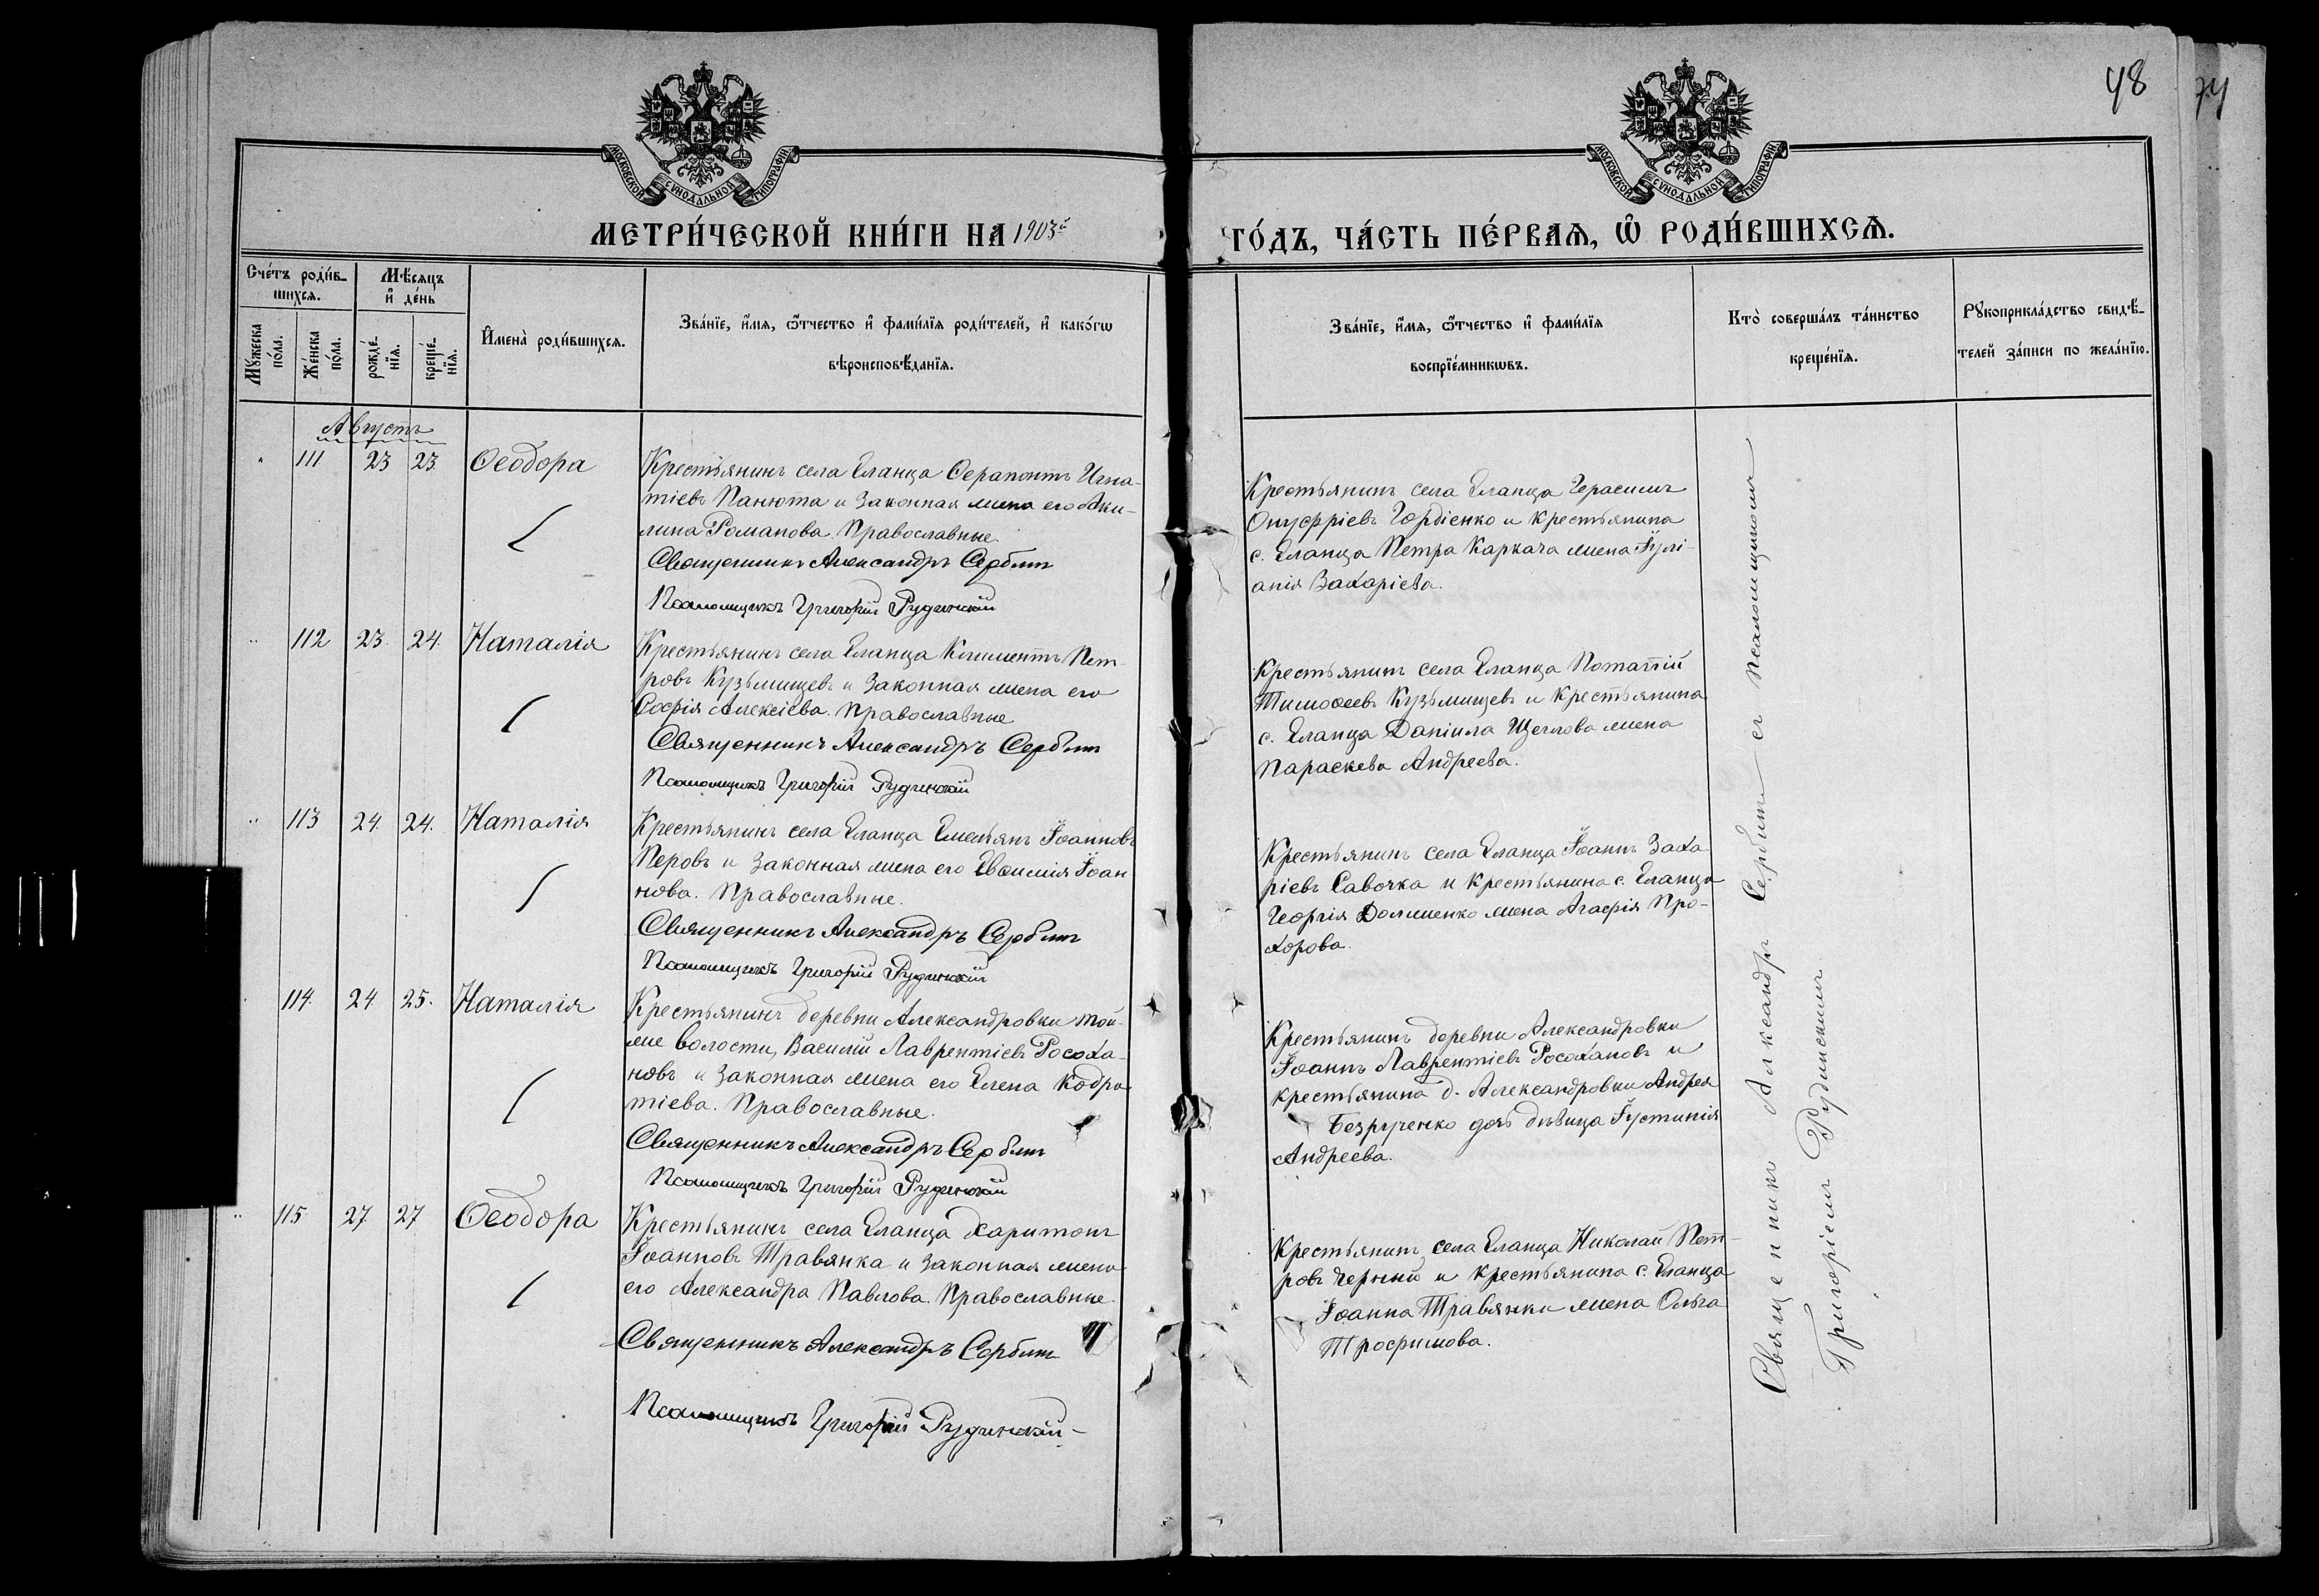 48
МОСКОВСКОЙ СѴНОДАЛЬНОЙ ТИПОГРАФІИ
МОСКОВСКОЙ СѴНОДАЛЬНОЙ ТИПОГРАФІИ
МЕТРИ́ЧЕСКОЙ КНИ́ГИ НА 1903й
ГО́ДЪ, ЧА́СТЬ ПЕ́РВАѦ, Ѡ҆ РОДИ́ВШИХСѦ.
Сче́тъ роди́в-
шихсѧ.
Мѣ́сѧцъ
и҆ де́нь
Мꙋ́жеска
по́ла.
Же́нска
по́ла.
рожде́-
нїѧ.
креще́-
нїѧ.
И҆мена̀ роди́вшихсѧ.
Зва́нїе, и҆́мѧ, ѻ҆́тчество и҆ фами́лїѧ роди́телей, и҆ како́гѡ
вѣроисповѣ́данїѧ.
Зва́нїе, и҆́мѧ, ѻ҆́тчество и҆ фами́лїѧ
воспрїе́мникѡвъ.
Кто̀ соверша́лъ та́инство
креще́нїѧ.
Рꙋкоприкла́дство свидѣ́-
телей за́писи по жела́нїю.
Августъ
" 111 23 23 Ѳеодора
Крестьянинъ села Еланца Ѳерапонтъ Игна-
тіевъ Панюта и законная жена его Аки-
лина Романова. Православные.
Священникъ Александръ Сербинъ
Псаломщикъ Григорій Рудинскій
Крестьянинъ села Еланца Герасимъ
Онуфріевъ Гордіенко и крестьянина
с. Еланца Петра Каркача жена Іулі-
анія Захаріева.
" 112 23. 24. Наталія
Крестьянинъ села Еланца Климентъ Пет-
ровъ Кузьмищевъ и законная жена его
Софія Алексіева. Православные
Священникъ Александръ Сербинъ
Псаломщикъ Григорій Рудинскій
Крестьянинъ села Еланца Потапій
Тимоѳеевъ Кузьмищевъ и крестьянина
с. Еланца Даніила Щеглова жена
Параскева Андреева.
" 113 24. 24. Наталія
Крестьянинъ села Еланца Емельянъ Іоанновъ
Перовъ и законная жена его Евѳимія Іоан
нова. Православные.
Священникъ Александръ Сербинъ
Псаломщикъ Григорій Рудинскій
Крестьянинъ села Еланца Іоаннъ Заха
ріевъ Савочка и крестьянина с. Еланца
Георгія Долженко жена Агафія Про-
хорова.
114. 24 25. Наталія
Крестьянинъ деревни Александровки той-
же волости, Василій Лаврентіевъ Росоха-
новъ и законная жена его Елена Кодра-
тіева. Православные.
Священникъ Александръ Сербинъ
Псаломщикъ Григорій Рудинскій
Крестьянинъ деревни Александровки
Іоаннъ Лаврентіевъ Росохановъ и
крестьянина д. Александровки Андрея
дочь дѣвица Іустинія
Андреева.
" 115 27 27 Ѳеодора
Крестьянинъ села Еланца Харитонъ
Іоанновъ Травянка и законная жена
его Александра Павлова. Православные.
Священникъ Александръ Сербинъ
Псаломщикъ Григорій Рудинскій
Крестьянинъ села Еланца Николай Пет-
ровъ Черный и крестьянина с. Еланца
Іоанна Травянки жена Ольга
Трофимова.
Священникъ Александръ Сербинъ съ псаломщикомъ
Григоріемъ Рудинскимъ.